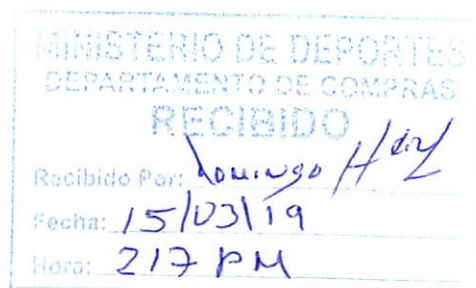 MINISTERIO DE DEPORTES
DEPARTAMENTO DE COMPRAS
RECIBIDO
Recibido Por: Domingo
Fecha: 15/03/19
Hora: 217 PM